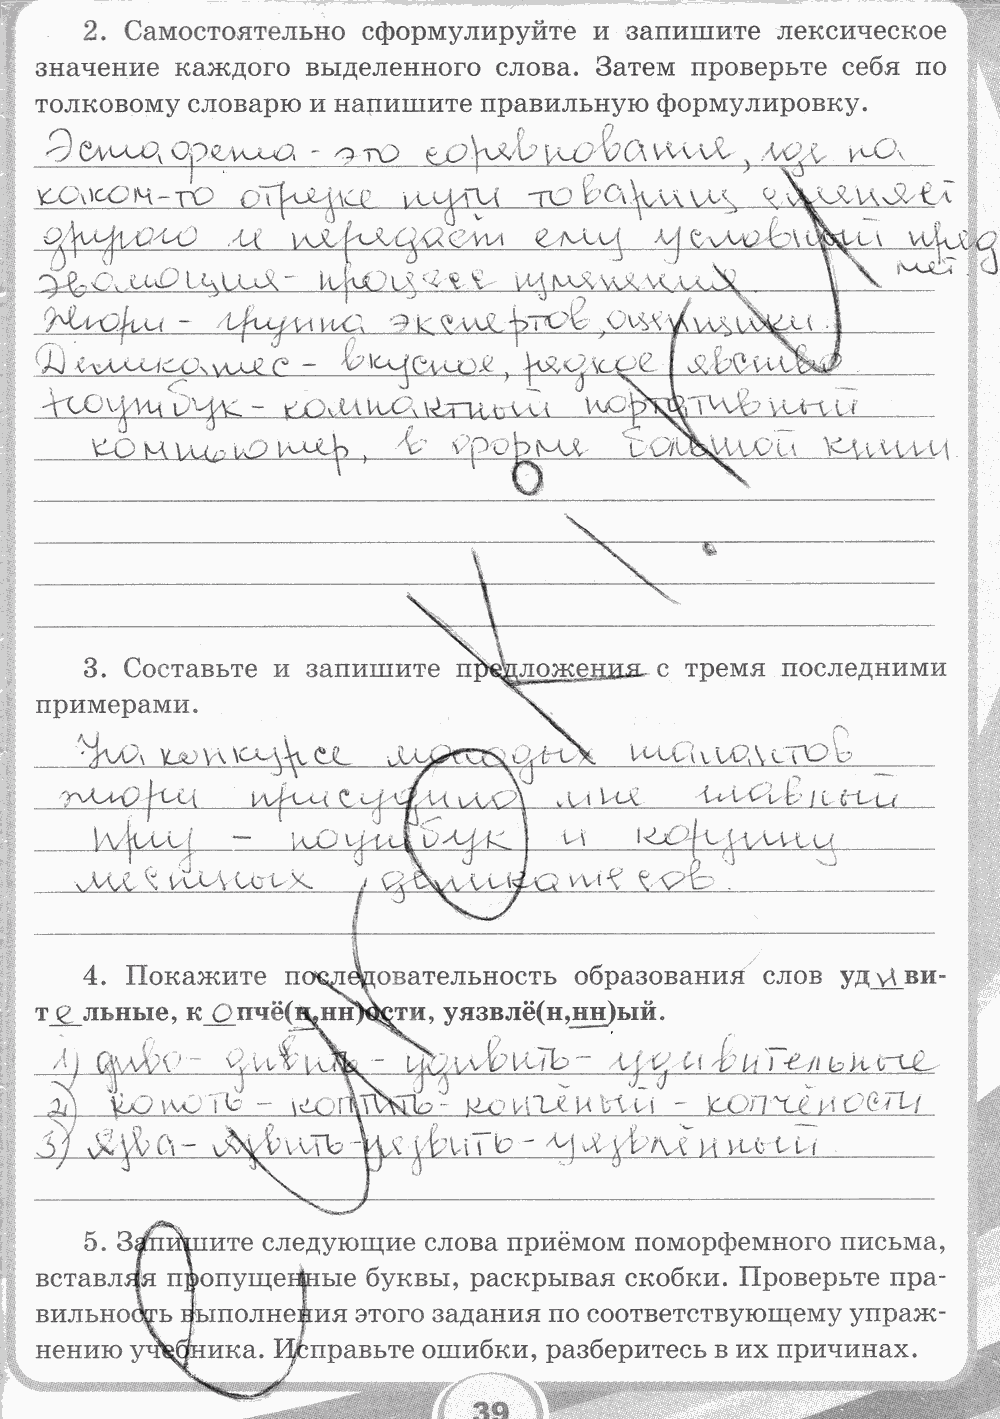 2. Самостоятельно сформулируйте и запишите лексическое
значение каждого выделенного слова. Затем проверьте себя по
толковому словарю и напишите правильную формулировку.
Эстафета - это соревнование, где на
каком-то отрезке пути товарищ сменяет
другого и передаёт ему условный пред
мет.
эволюция - процесс изменения.
Жюри - группа экспертов, оценщики.
Деликатес - вкусное, редкое явство
Ноутбук - компактный портативный
компьютер, в форме большой книги
3. Составьте и запишите предложения с тремя последними
примерами.
На конкурсе молодых талантов
жюри присудило мне главный
приз - ноутбук и корзину
местных деликатесов.
4. Покажите последовательность образования слов уд_и_ви-
т_е_льные, к_о_пчё(н,нн)ости, уязвлё(н,нн)ый.
1) диво - дивить - удивить - удивительные
2) копоть - коптить - копчёный - копчёности
3) язва - язвить - уязвить - уязвлённый
5. Запишите следующие слова приёмом поморфемного письма,
вставляя пропущенные буквы, раскрывая скобки. Проверьте пра-
вильность выполнения этого задания по соответствующему упраж-
нению учебника. Исправьте ошибки, разберитесь в их причинах.
39